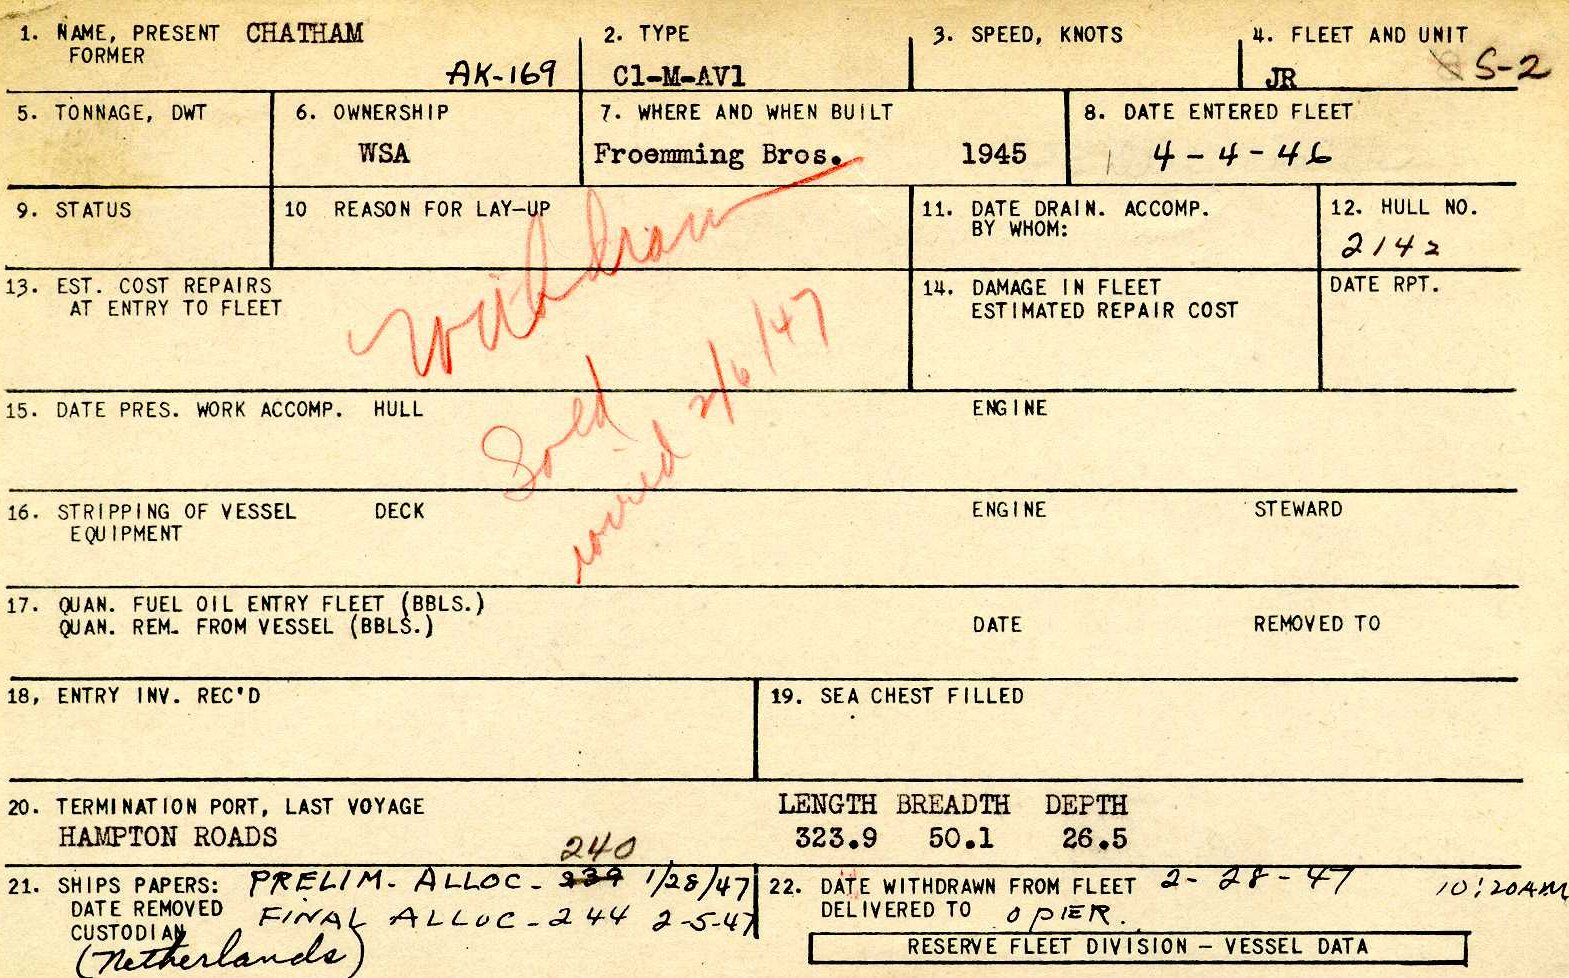 1. NAME, PRESENT CHATHAM
FORMER
AK-169
2. TYPE
C1-M-AV1
3. SPEED, KNOTS
4. FLEET AND UNIT
JR S-2
5. TONNAGE, DWT
6. OWNERSHIP
WSA
7. WHERE AND WHEN BUILT
Froemming Bros. 1945
8. DATE ENTERED FLEET
4-4-46
9. STATUS
10 REASON FOR LAY-UP
Withdrawn
11. DATE DRAIN. ACCOMP.
BY WHOM:
12. HULL NO.
2142
13. EST. COST REPAIRS
AT ENTRY TO FLEET
14. DAMAGE IN FLEET
ESTIMATED REPAIR COST
DATE RPT.
Sold
2/6/47
15. DATE PRES. WORK ACCOMP. HULL ENGINE
16. STRIPPING OF VESSEL DECK ENGINE STEWARD
EQUIPMENT
17. QUAN. FUEL OIL ENTRY FLEET (BBLS.)
QUAN. REM. FROM VESSEL (BBLS.) DATE REMOVED TO
18, ENTRY INV. REC'D
19. SEA CHEST FILLED
20. TERMINATION PORT, LAST VOYAGE
HAMPTON ROADS
LENGTH BREADTH DEPTH
323.9 50.1 26.5
240
21. SHIPS PAPERS: PRELIM. ALLOC- 239 1/28/47
DATE REMOVED FINAL ALLOC-244 2-5-47
CUSTODIAN
(Netherlands)
22. DATE WITHDRAWN FROM FLEET 2-28-47 10:20AM
DELIVERED TO OPER.
RESERVE FLEET DIVISION - VESSEL DATA